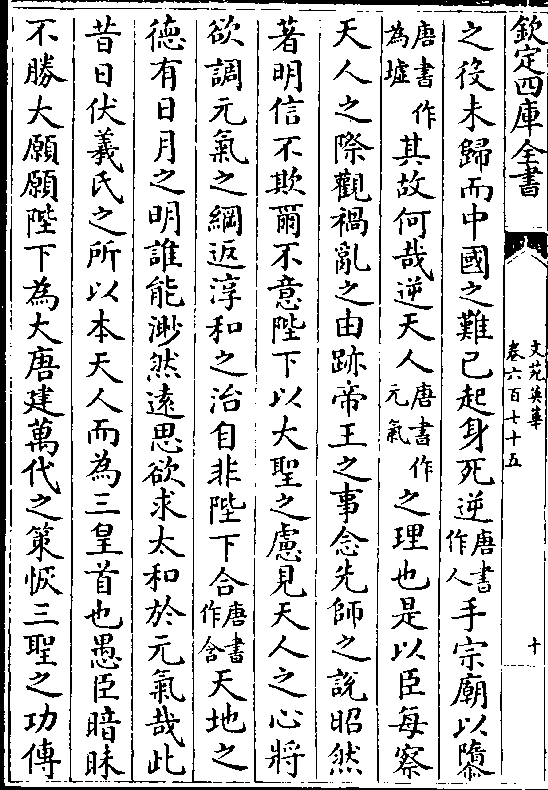 欽定四庫全書
文苑英華
卷六百七十五
十
之役未歸而中國之難已起身死逆唐書作人手宗廟以隳
唐書作為墟其故何哉逆天人唐書作元氣之理也是以臣每察
天人之際觀禍亂之由跡帝王之事念先師之說昭然
著明信不欺爾不意陛下以大聖之慮見天人之心將
欲調元氣之綱返淳和之治自非陛下合唐書作含天地之
德有日月之明誰能渺然遠思欲求太和於元氣哉此
昔日伏羲氏之所以本天人而為三皇首也愚臣暗昧
不勝大願願陛下為大唐建萬代之策恢三聖之功傳